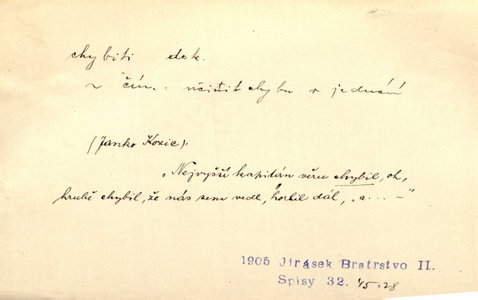 chybiti dok.
v čím. učinit chybu v jednání
(Janko Kozic):
„Nejvyšší kapitán věru chybil, oh,
hrubě chybil, že nás sem vedl,“ horlil dál, „a... –“
1905 Jirásek Bratrstvo II.
Spisy 32. 45.28